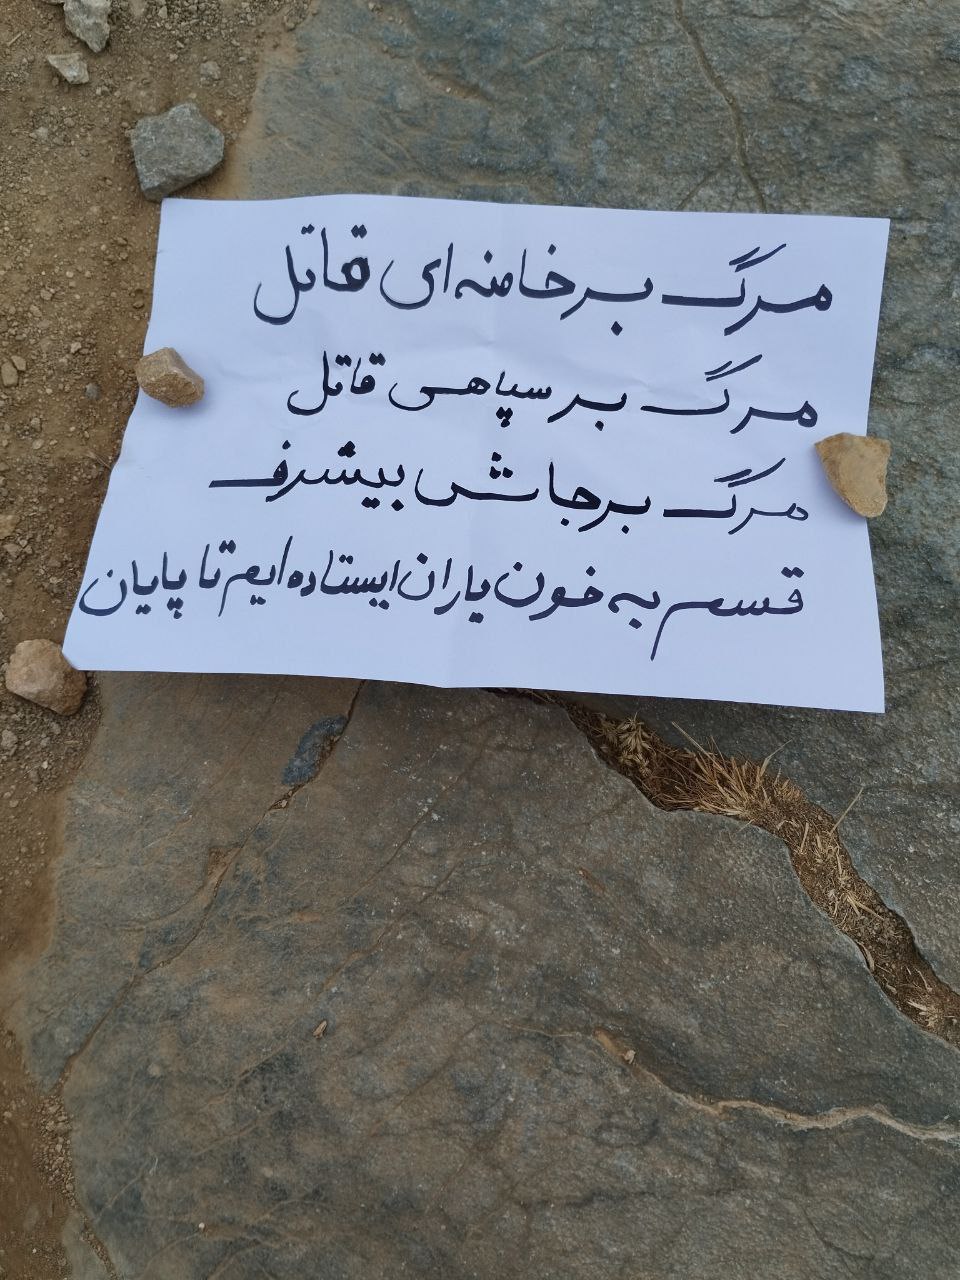 مرگ بر خامنه ای قاتل
مرگ بر سپاهی قاتل
مرگ بر جاش بیشرف
قسم به خون یاران ایستاده ایم تا پایان